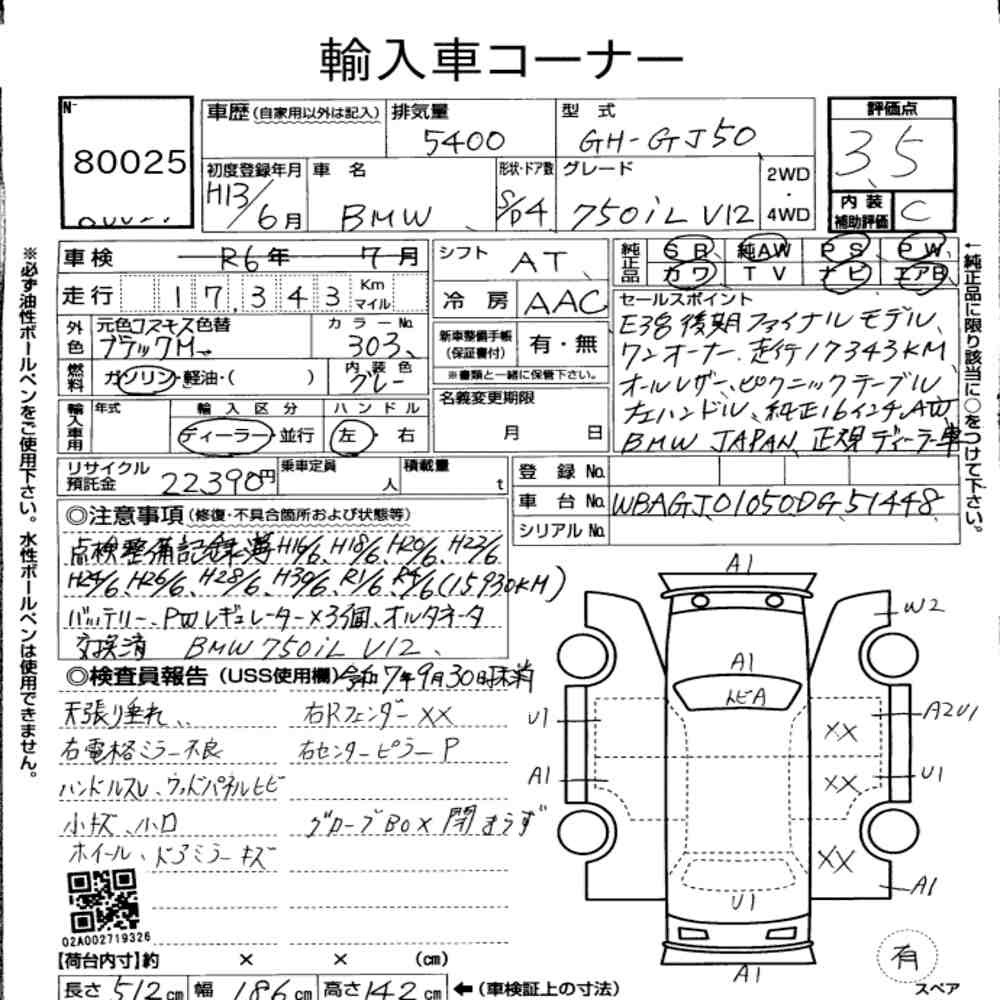 輸入車コーナー
N-
80025
車歴(自家用以外は記入) 排気量 5400 型式 GH-GJ50 評価点 3.5
初度登録年月 H13/6月 車名 BMW 形状・ドア数 S/D4 グレード 750iL V12 2WD・4WD 内装補助評価 C
車検 R6年 7月 シフト AT 純正品 SR 純AW PS PW
カワ TV ナビ エアB
走行 17,343 Km マイル 冷房 AAC セールスポイント
外色 元色コスモス色替 ブラックM カラーNo. 303 新車整備手帳(保証書付) 有・無
※書類と一緒に保管下さい。
燃料 ガソリン・軽油・( ) 内装色 グレー
E38後期ファイナルモデル、
ワンオーナー、走行17343KM
オールレザー、ピクニックテーブル
左ハンドル、純正16インチAW
BMW JAPAN 正規ディーラー車
名義変更期限 月 日
輸入車用 年式 輸入区分 ディーラー・並行 ハンドル 左・右
リサイクル預託金 22390円 乗車定員 人 積載量 t
登録No.
車台No. WBAGJ01050DG51448
シリアルNo.
◎注意事項(修復・不具合箇所および状態等)
点検整備記録簿H16/6、H18/6、H20/6、H22/6
H24/6、H26/6、H28/6、H30/6、R1/6、R4/6(15,930KM)
バッテリー、PWレギュレーター×3個、オルタネータ
交換済 BMW 750iL V12、
◎検査員報告(USS使用欄) 令和7年9月30日抹消
天張り垂れ 右Rフェンダー XX
右電格ミラー不良 右センターピラー P
ハンドルスレ、ウッドパネルヒビ
小キズ、小凹 グローブBOX 閉まらず
ホイール、ドアミラーキズ
02A002719326
A1
W2
A1
トビA
U1
XX
A2U1
A1
XX
U1
XX
U1
A1
A1
有
スペア
【荷台内寸】約 × × (cm)
長さ 512cm 幅 186cm 高さ 142cm ←(車検証上の寸法)
※必ず油性ボールペンをご使用下さい。水性ボールペンは使用できません。
←純正品に限り該当に○をつけて下さい。